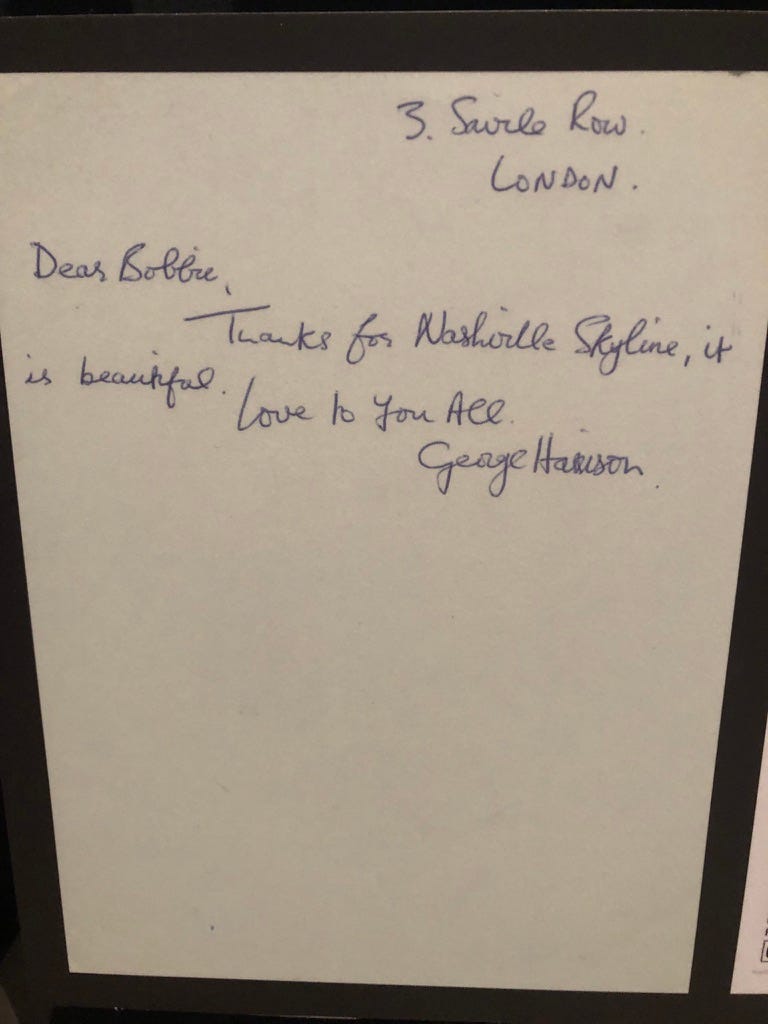 3. Savile Row.
LONDON.
Dear Bobbie,
Thanks for Nashville Skyline, it
is beautiful.
Love to You All.
George Harrison.